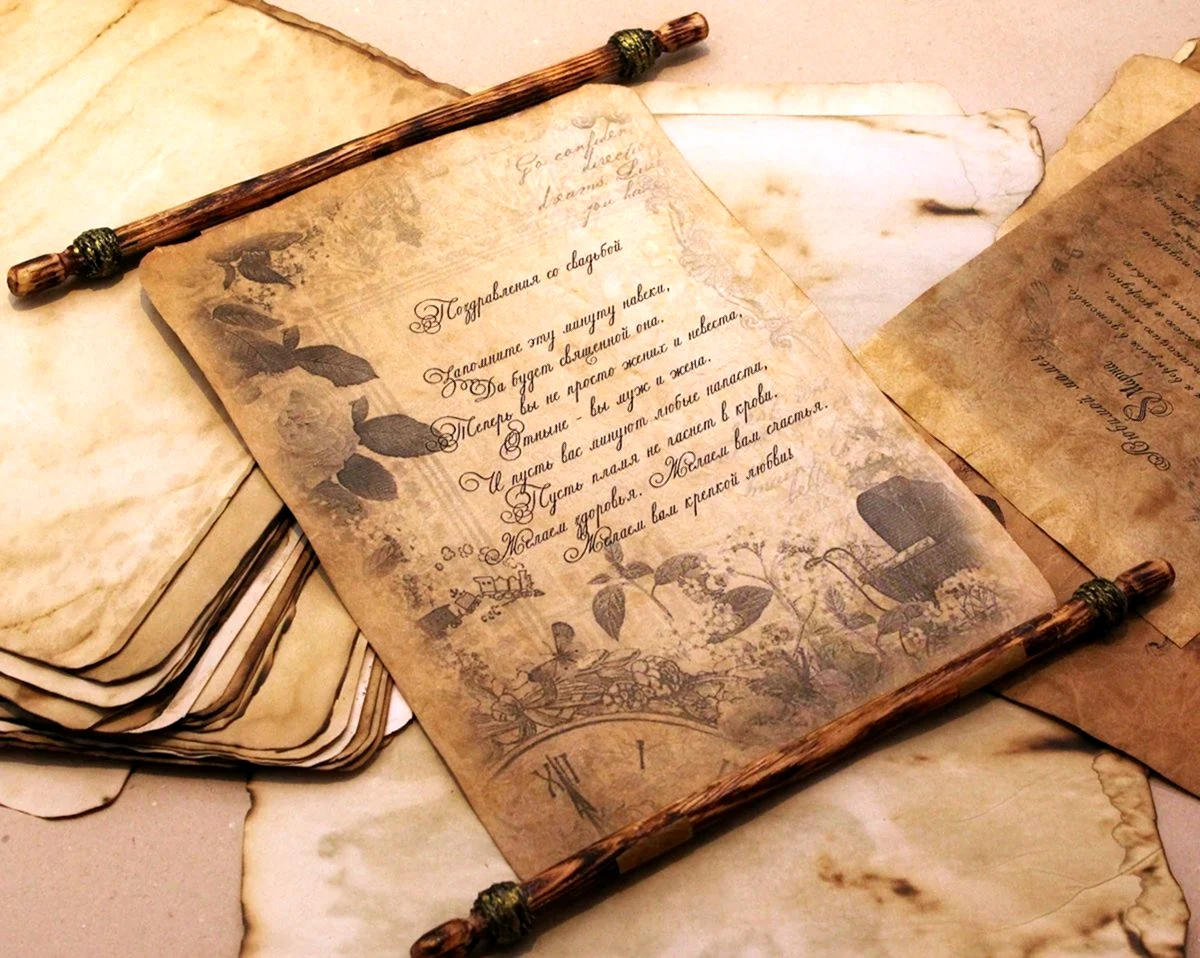 Go confiden
directio
dreams. Live
you ha
Поздравления со свадьбой
Запомните эту минуту навеки,
Да будет священной она.
Теперь вы не просто жених и невеста,
Отныне - вы муж и жена.
И пусть вас минуют любые напасти,
Пусть пламя не гаснет в крови.
Желаем здоровья. Желаем вам счастья.
Желаем вам крепкой любвиь
XII I
Любимой маме
Марии